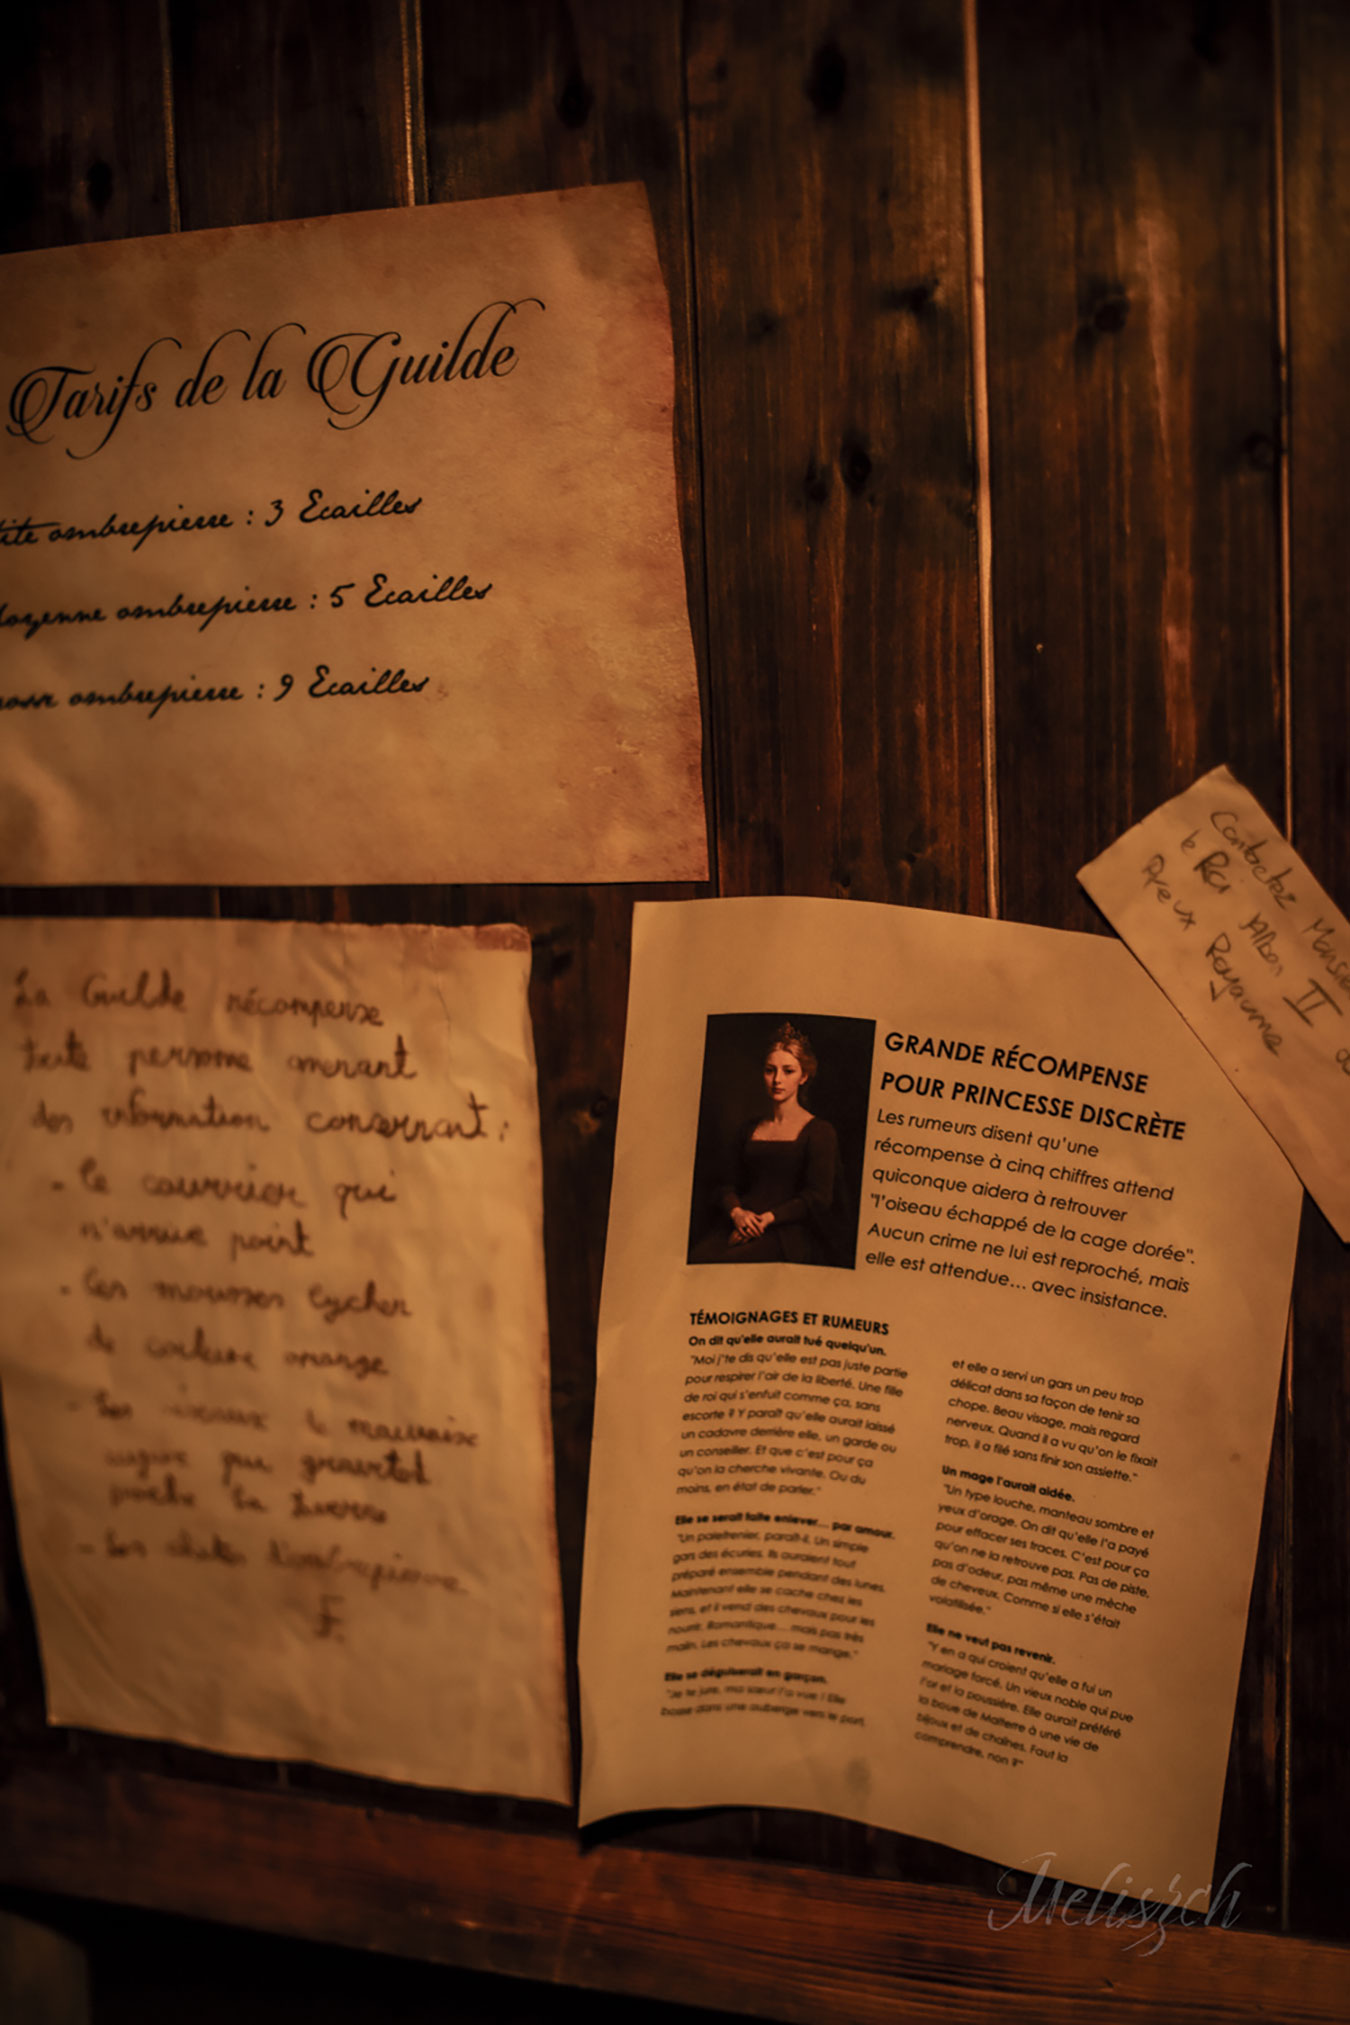 Tarifs de la Guilde
ombrepierre : 3 Ecailles
oyenne ombrepierre : 5 Ecailles
osse ombrepierre : 9 Ecailles
Contactez
le Roi Albor II
Royaume
La Guilde récompense
toute personne amenant
des information concernant :
- le courrier qui
n'arrive point
- les mousses lycher
de couleur orange
- Les oiseaux de mauvaise
augure qui
- Les d'ombrepierre
F.
GRANDE RÉCOMPENSE
POUR PRINCESSE DISCRÈTE
Les rumeurs disent qu'une
récompense à cinq chiffres attend
quiconque aidera à retrouver
"l'oiseau échappé de la cage dorée".
Aucun crime ne lui est reproché, mais
elle est attendue... avec insistance.
TÉMOIGNAGES ET RUMEURS
On dit qu'elle aurait tué quelqu'un.
"Moi j'te dis qu'elle est pas juste partie
pour respirer l'air de la liberté. Une fille
de roi qui s'enfuit comme ça, sans
escorte ? Y paraît qu'elle aurait laissé
un cadavre derrière elle, un garde ou
un conseiller. Et que c'est pour ça
qu'on la cherche vivante. Ou du
moins, en état de parler."
Elle se serait faite enlever... par amour.
"Un palefrenier, paraît-il. Un simple
gars des écuries. Ils auraient tout
préparé ensemble pendant des lunes.
Maintenant elle se cache chez les
siens, et il vend des chevaux pour les
nourrir. Romantique... mais pas très
malin. Les chevaux ça se mange."
Elle se déguiserait en garçon.
"Je te jure, ma sœur l'a vue ! Elle
bosse dans une auberge vers le port,
et elle a servi un gars un peu trop
délicat dans sa façon de tenir sa
chope. Beau visage, mais regard
nerveux. Quand il a vu qu'on le fixait
trop, il a filé sans finir son assiette."
Un mage l'aurait aidée.
"Un type louche, manteau sombre et
yeux d'orage. On dit qu'elle l'a payé
pour effacer ses traces. C'est pour ça
qu'on ne la retrouve pas. Pas de piste,
pas d'odeur, pas même une mèche
de cheveux. Comme si elle s'était
volatilisée."
Elle ne veut pas revenir.
"Y en a qui croient qu'elle a fui un
mariage forcé. Un vieux noble qui pue
l'or et la poussière. Elle aurait préféré
la boue de Malterre à une vie de
bijoux et de chaînes. Faut la
comprendre, non ?"
Meliszch